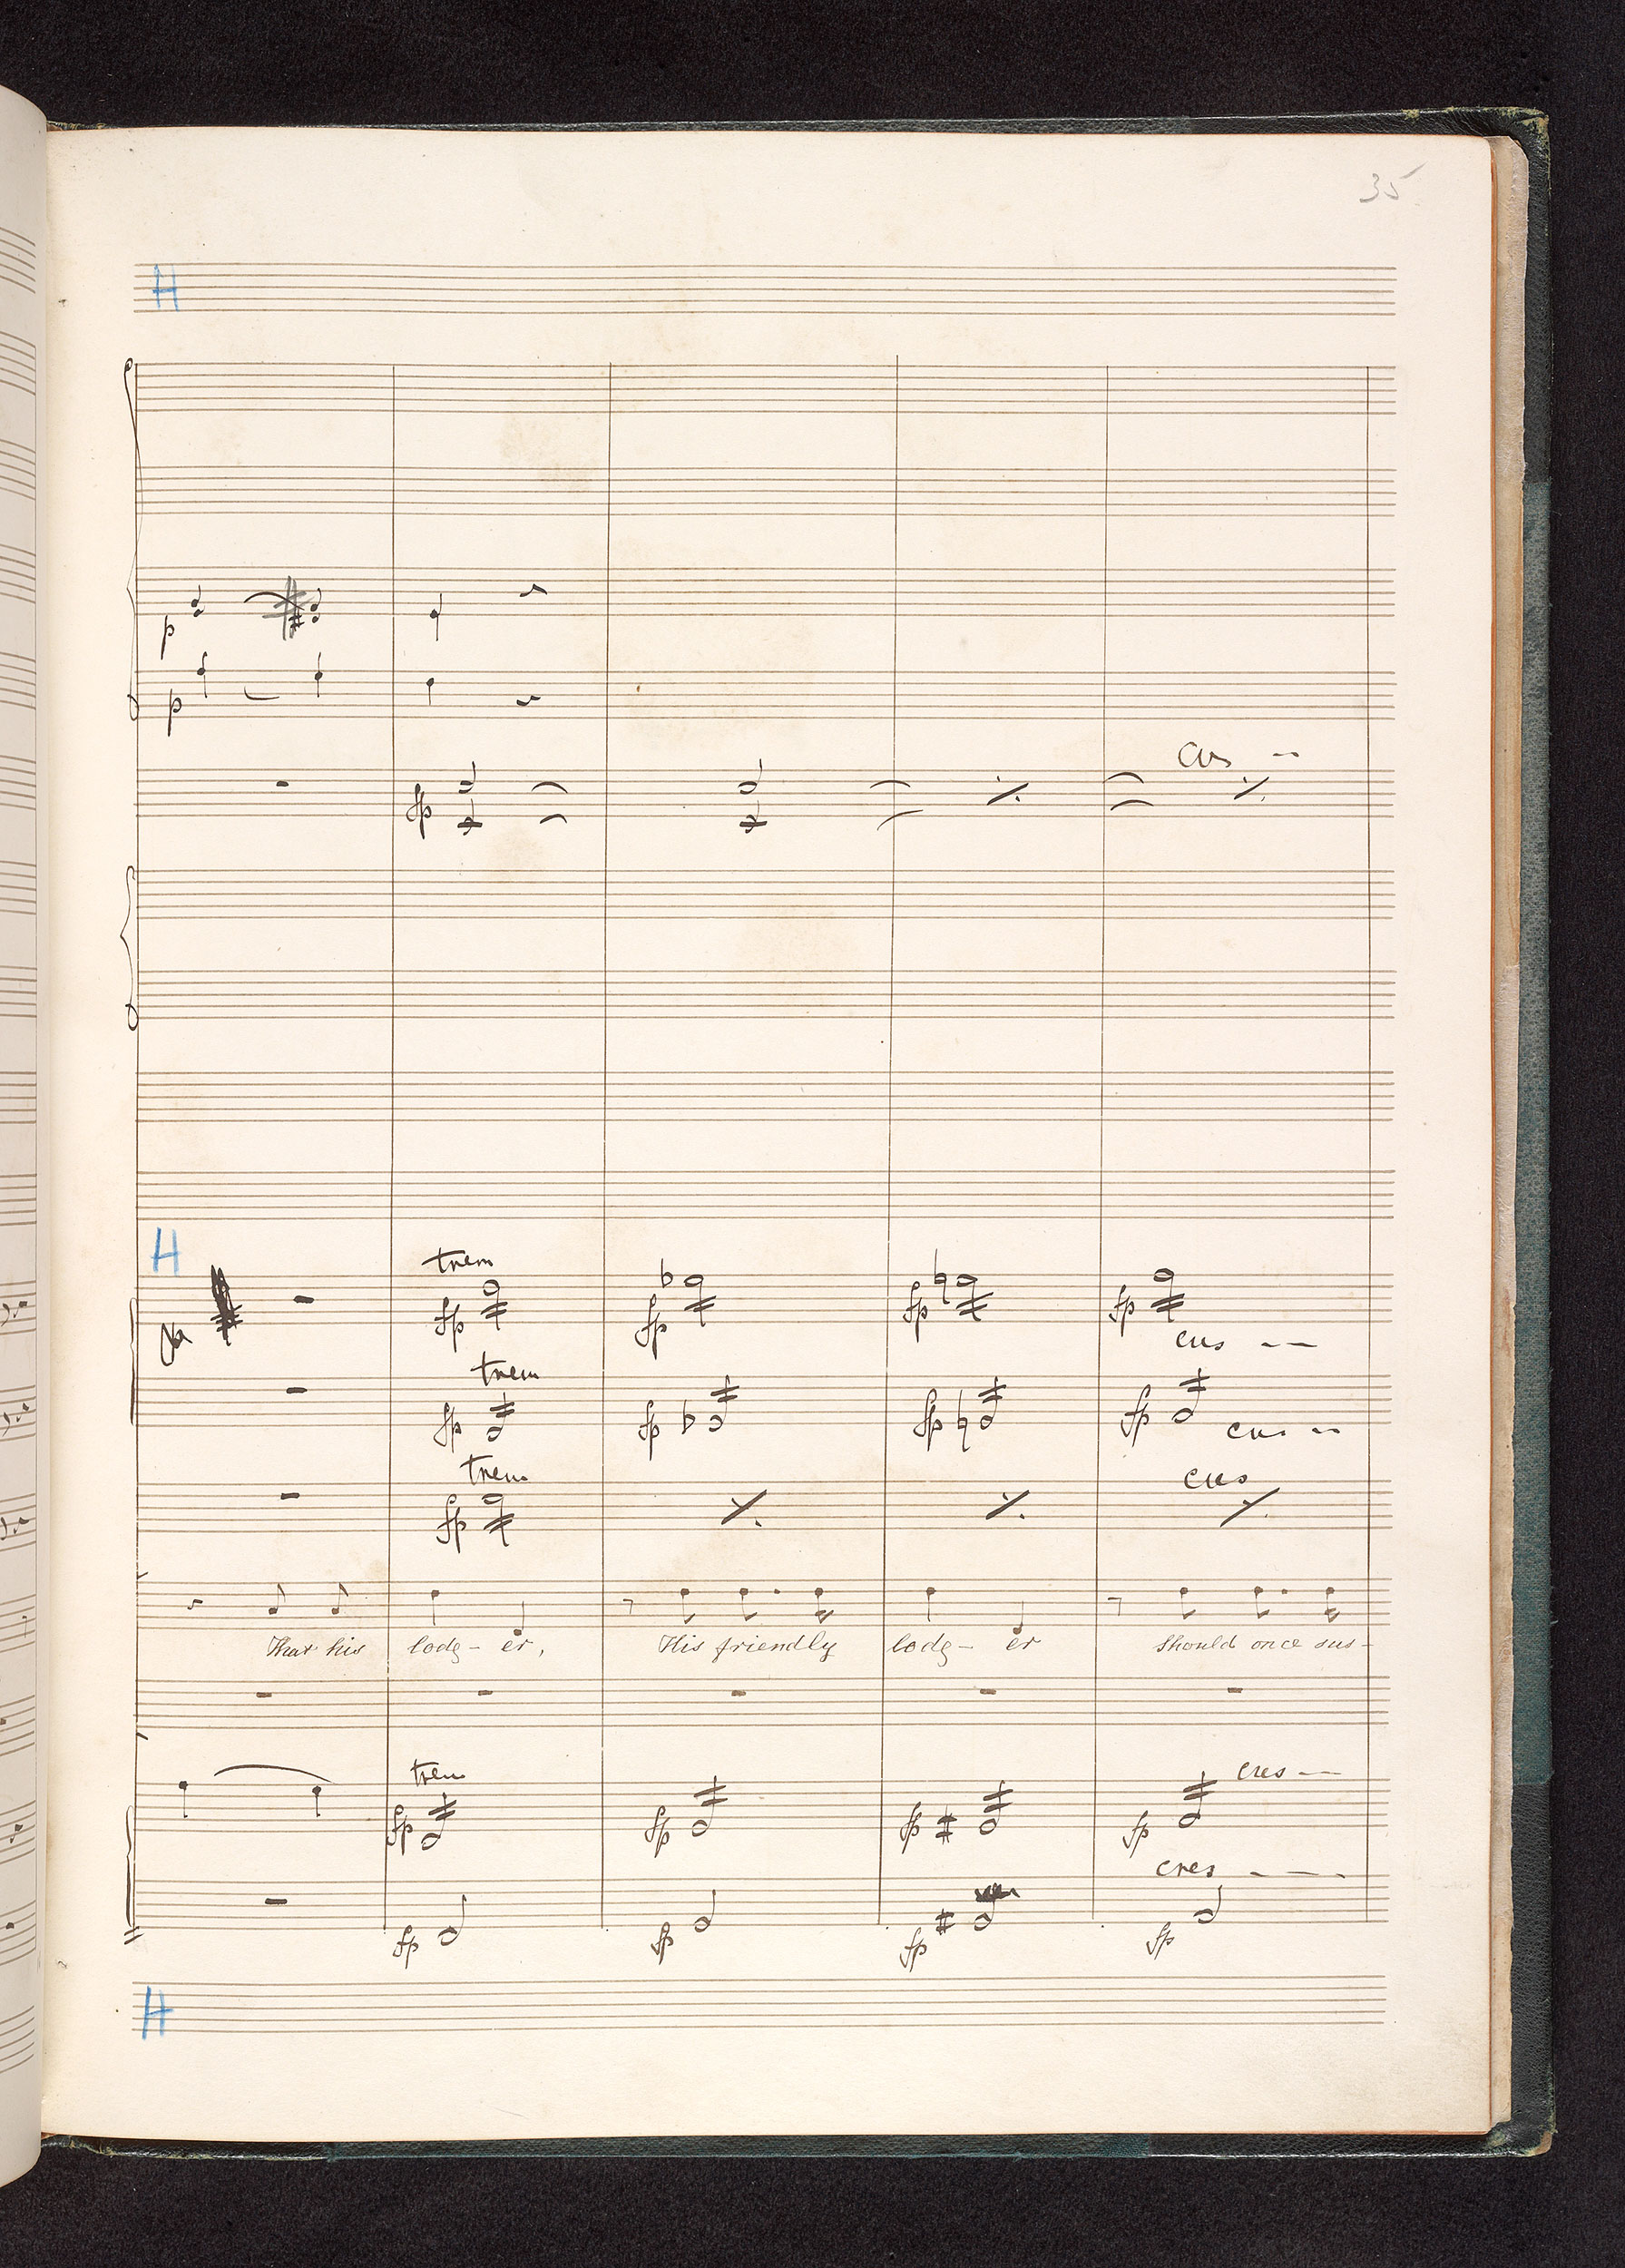 35
H
p
p
cres --
fp
H
trem
fp fp fp fp
cres --
trem
fp fp fp fp
cres --
trem
cres
fp
That his lodg - er, His friendly lodg - er Should once sus -
trem
cres --
fp fp fp fp
cres - - -
fp fp fp fp
H